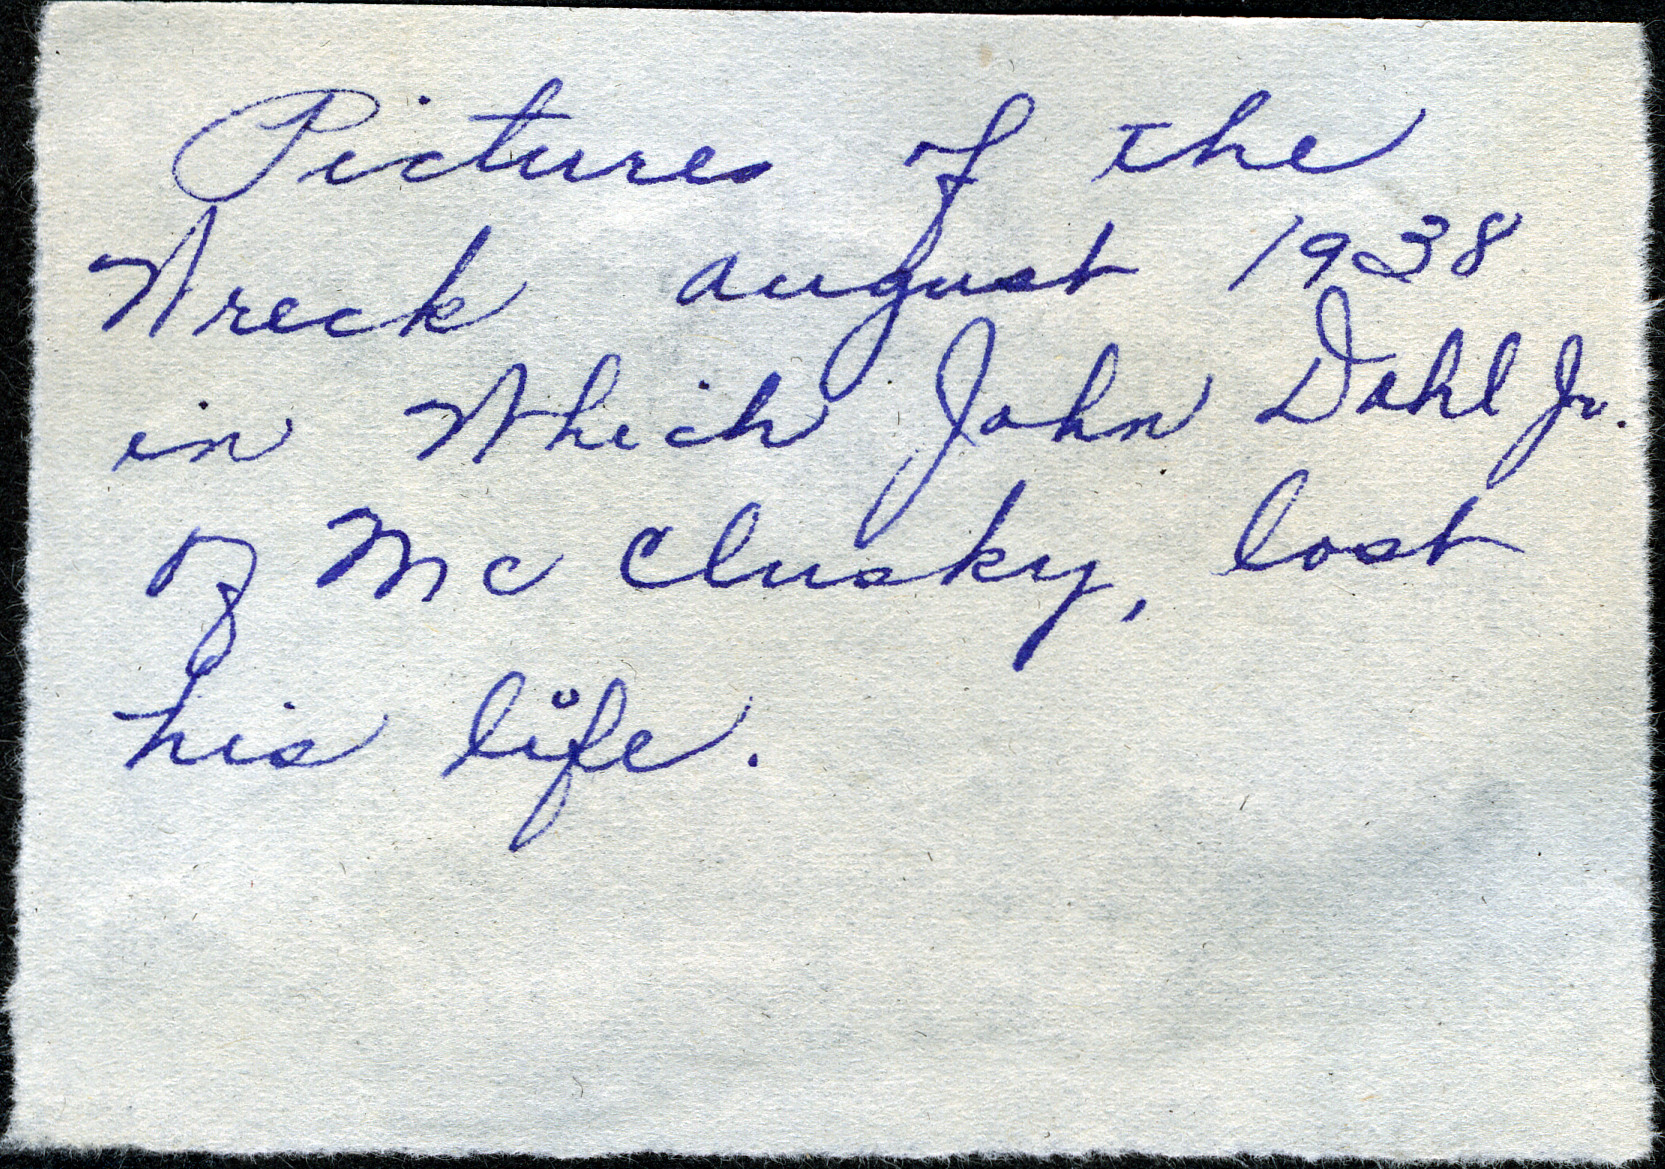 Pictures of the
Wreck august 1938
in Which John Dahl Jr.
of Mc Clusky, lost
his life.